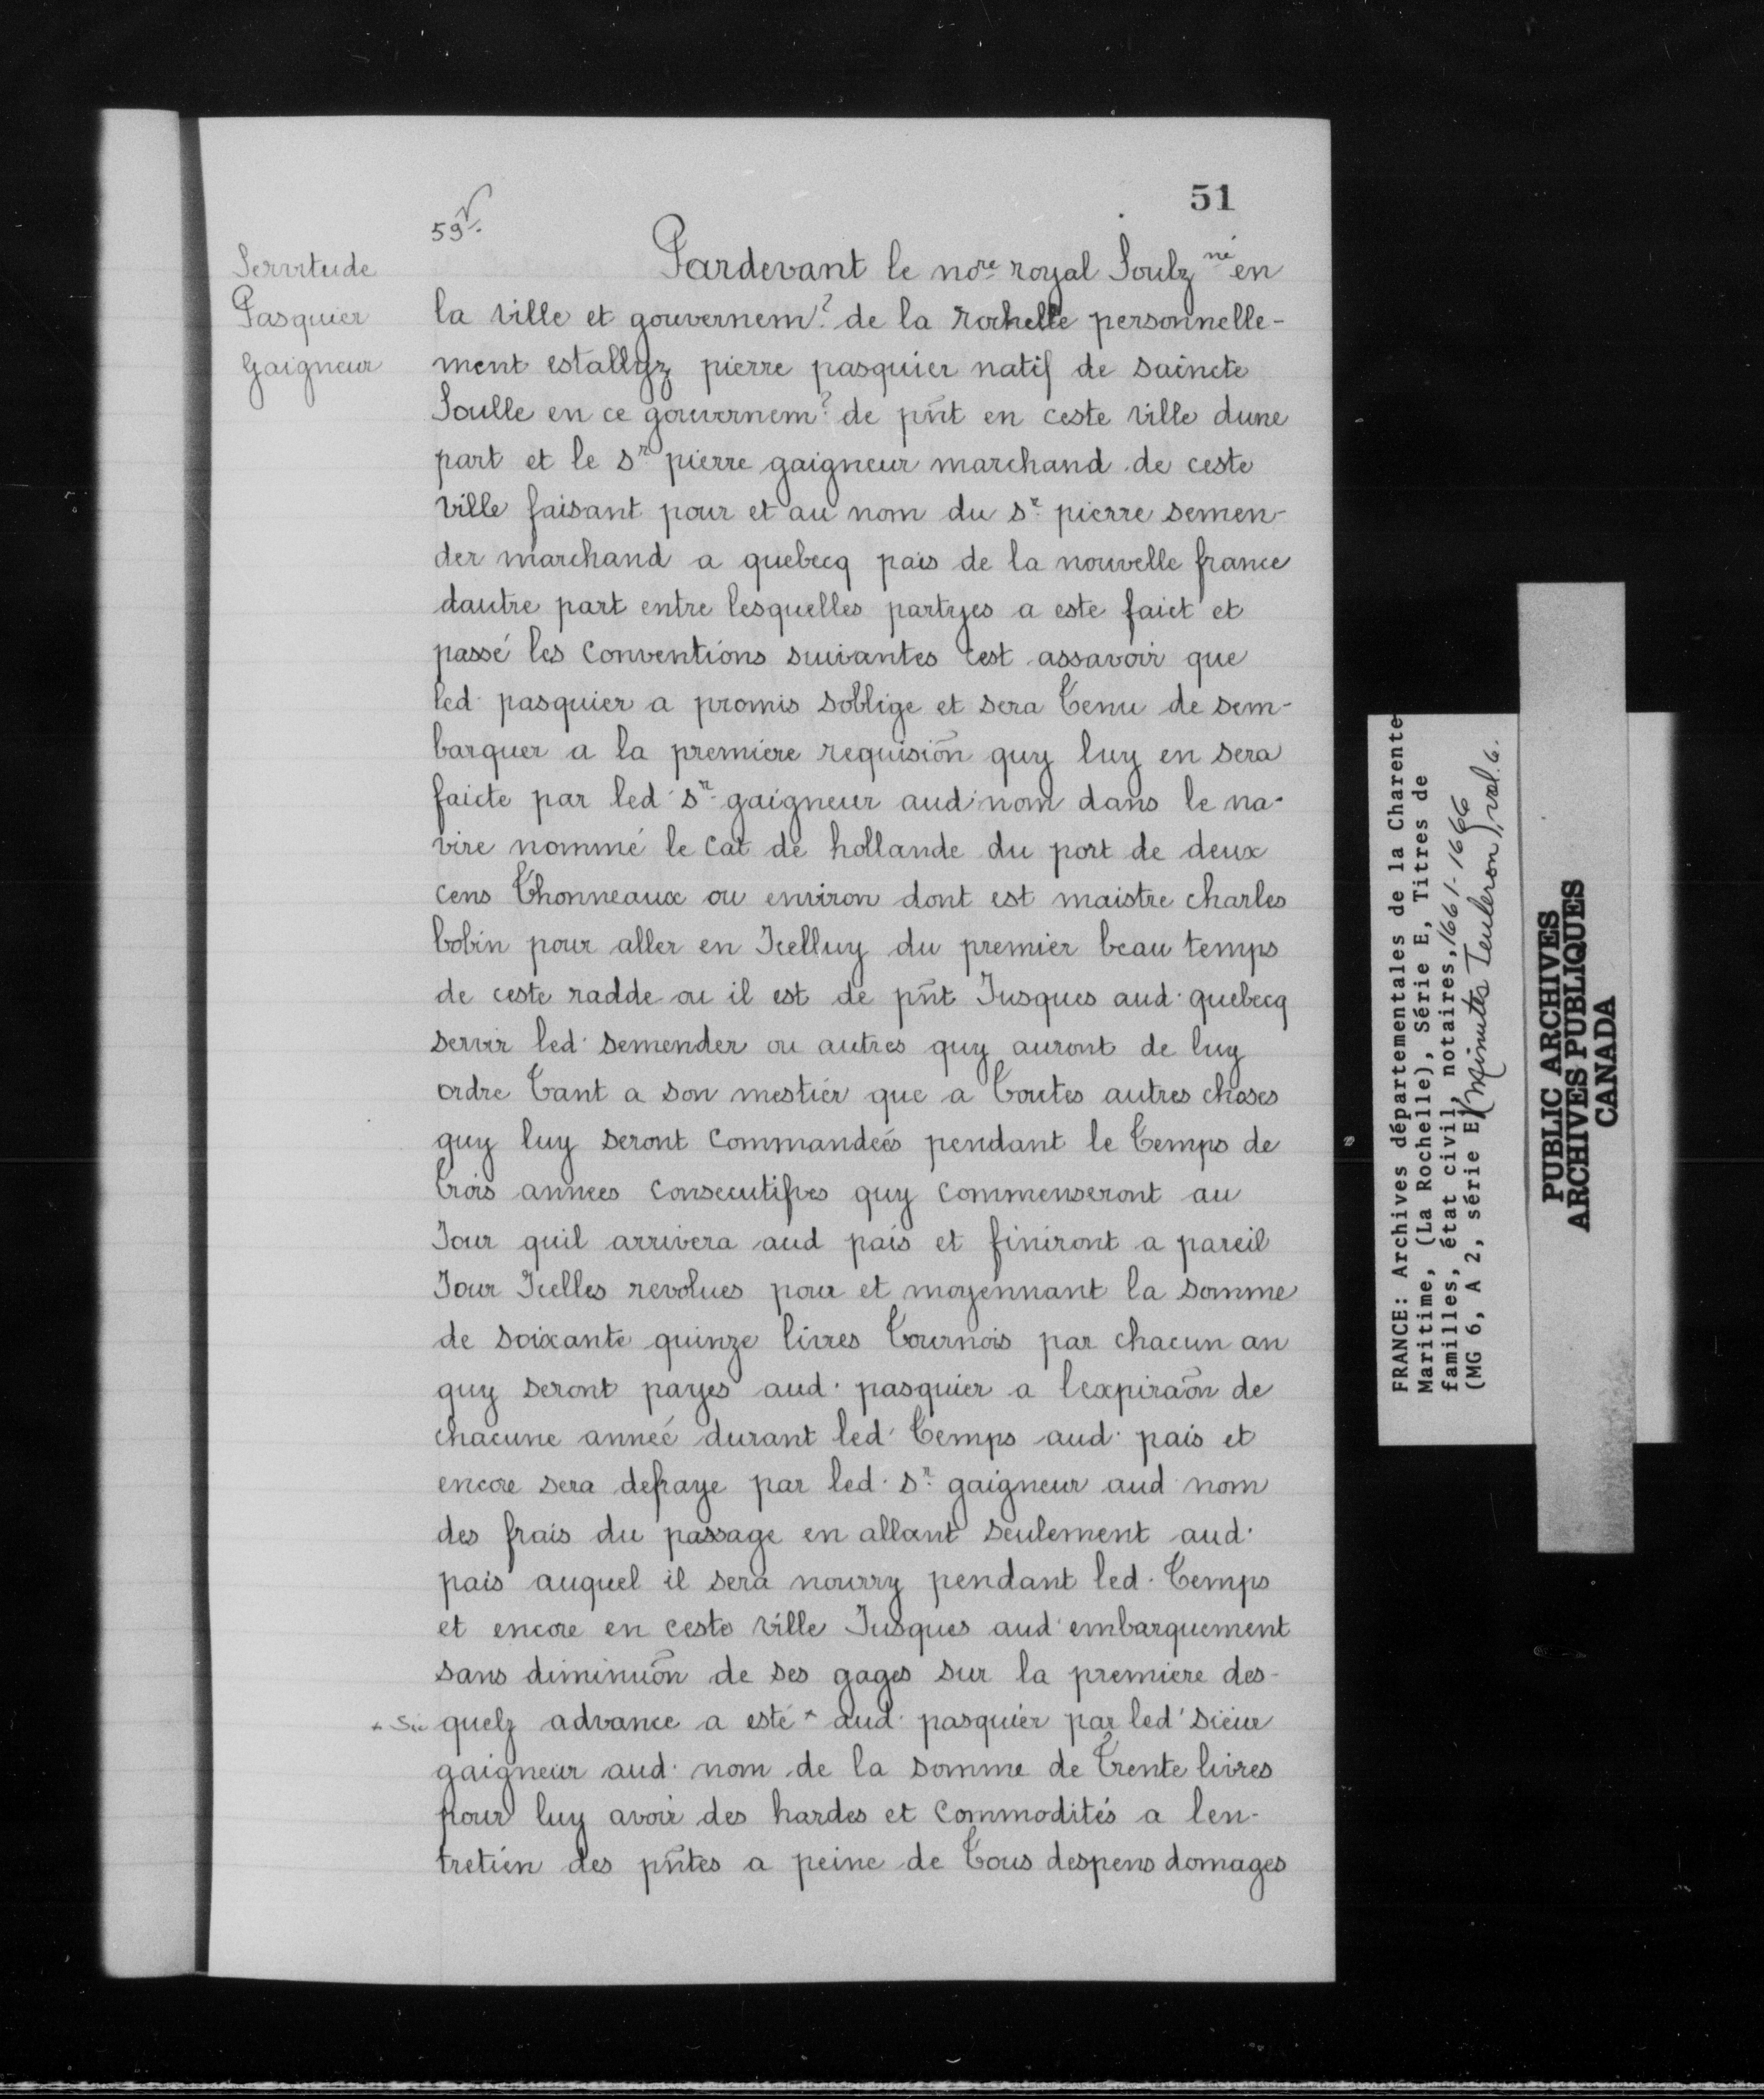 51
59 v.
Servitude
Pasquier
gaigneur
Pardevant le nore royal Soulz né en
la ville et gouvernemt. de la rochelle personnelle-
ment establyz pierre pasquier natif de saincte
Soulle en ce gouvernemt. de pñt en ceste ville dune
part et le sr pierre gaigneur marchand de ceste
ville faisant pour et au nom du sr. pierre semen-
der marchand a quebecq pais de la nouvelle france
dautre part entre lesquelles partyes a este faict et
passé les Conventions suivantes cest assavoir que
led pasquier a promis soblige et sera Tenu de sem-
barquer a la premiere requisiõn quy luy en sera
faicte par led. sr. gaigneur aud. nom dans le na-
vire nommé le Cat de hollande du port de deux
cens Thonneaux ou environ dont est maistre charles
bobin pour aller en Icelluy du premier beau temps
de ceste radde ou il est de pñt Jusques aud. quebecq
servir led. semender ou autres quy auront de luy
ordre Tant a son mestier que a Toutes autres choses
quy luy seront Commandeés pendant le Temps de
Trois annees Consecutifves quy Commenseront au
Jour quil arrivera aud pais et finiront a pareil
Jour Icelles revolues pour et moyennant la somme
de soixante quinze livres Tournois par chacun an
quy seront payes aud. pasquier a lexpiraõn de
chacune année durant led. Temps aud. pais et
encore sera defraye par led. sr. gaigneur aud nom
des frais du passage en allant seulement aud.
pais auquel il sera nourry pendant led. Temps
et encore en ceste ville Jusques aud. embarquement
sans diminuõn de ses gages sur la premiere des-
* Sic quelz advance a esté * aud. pasquier par led. sieur
gaigneur aud. nom de la somme de Trente livres
pour luy avoir des hardes et Commodités a len-
tretien des pñtes a peine de Tous despens domages
FRANCE: Archives départementales de la Charente-
Maritime, (La Rochelle), Série E, Titres de
familles, état civil, notaires, 1661-1666
(MG 6, A 2, série E) (Minutes Teuleron), vol. 6.
PUBLIC ARCHIVES
ARCHIVES PUBLIQUES
CANADA